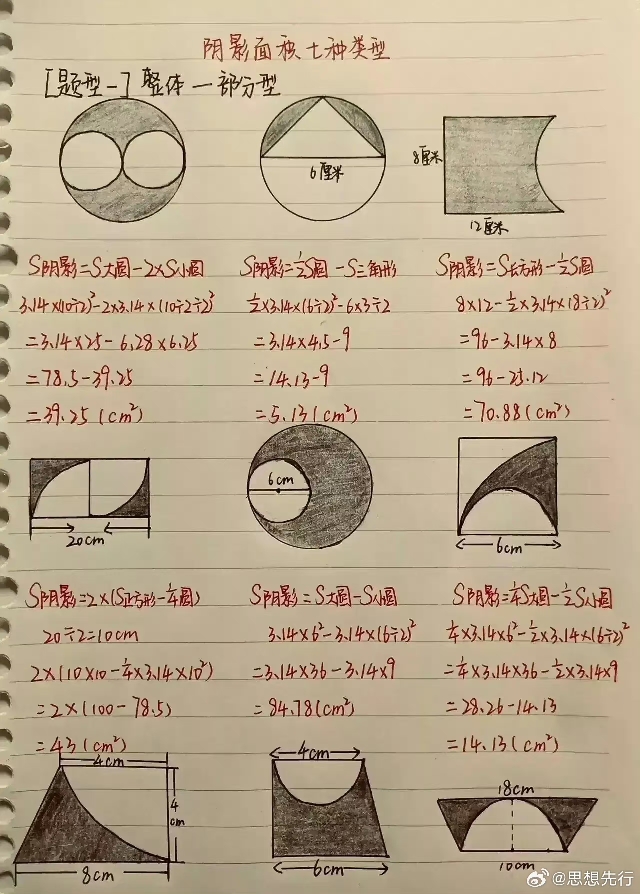 阴影面积七种类型
[题型一] 整体一部分型
6厘米
8厘米
12厘米
S阴影=S大圆-2×S小圆
3.14×(10÷2)²-2×3.14×(10÷2÷2)²
=3.14×25-6.28×6.25
=78.5-39.25
=39.25(cm²)
S阴影=½S圆-S三角形
½×3.14×(6÷2)²-6×3÷2
=3.14×4.5-9
=14.13-9
=5.13(cm²)
S阴影=S长方形-½S圆
8×12-½×3.14×(8÷2)²
=96-3.14×8
=96-25.12
=70.88(cm²)
20cm
6cm
6cm
S阴影=2×(S正方形-¼圆)
20÷2=10cm
2×(10×10-¼×3.14×10²)
=2×(100-78.5)
=43(cm²)
S阴影=S大圆-S小圆
3.14×6²-3.14×(6÷2)²
=3.14×36-3.14×9
=84.78(cm²)
S阴影=¼S大圆-½S小圆
¼×3.14×6²-½×3.14×(6÷2)²
=¼×3.14×36-½×3.14×9
=28.26-14.13
=14.13(cm²)
4cm
4cm
8cm
4cm
6cm
18cm
10cm
@思想先行